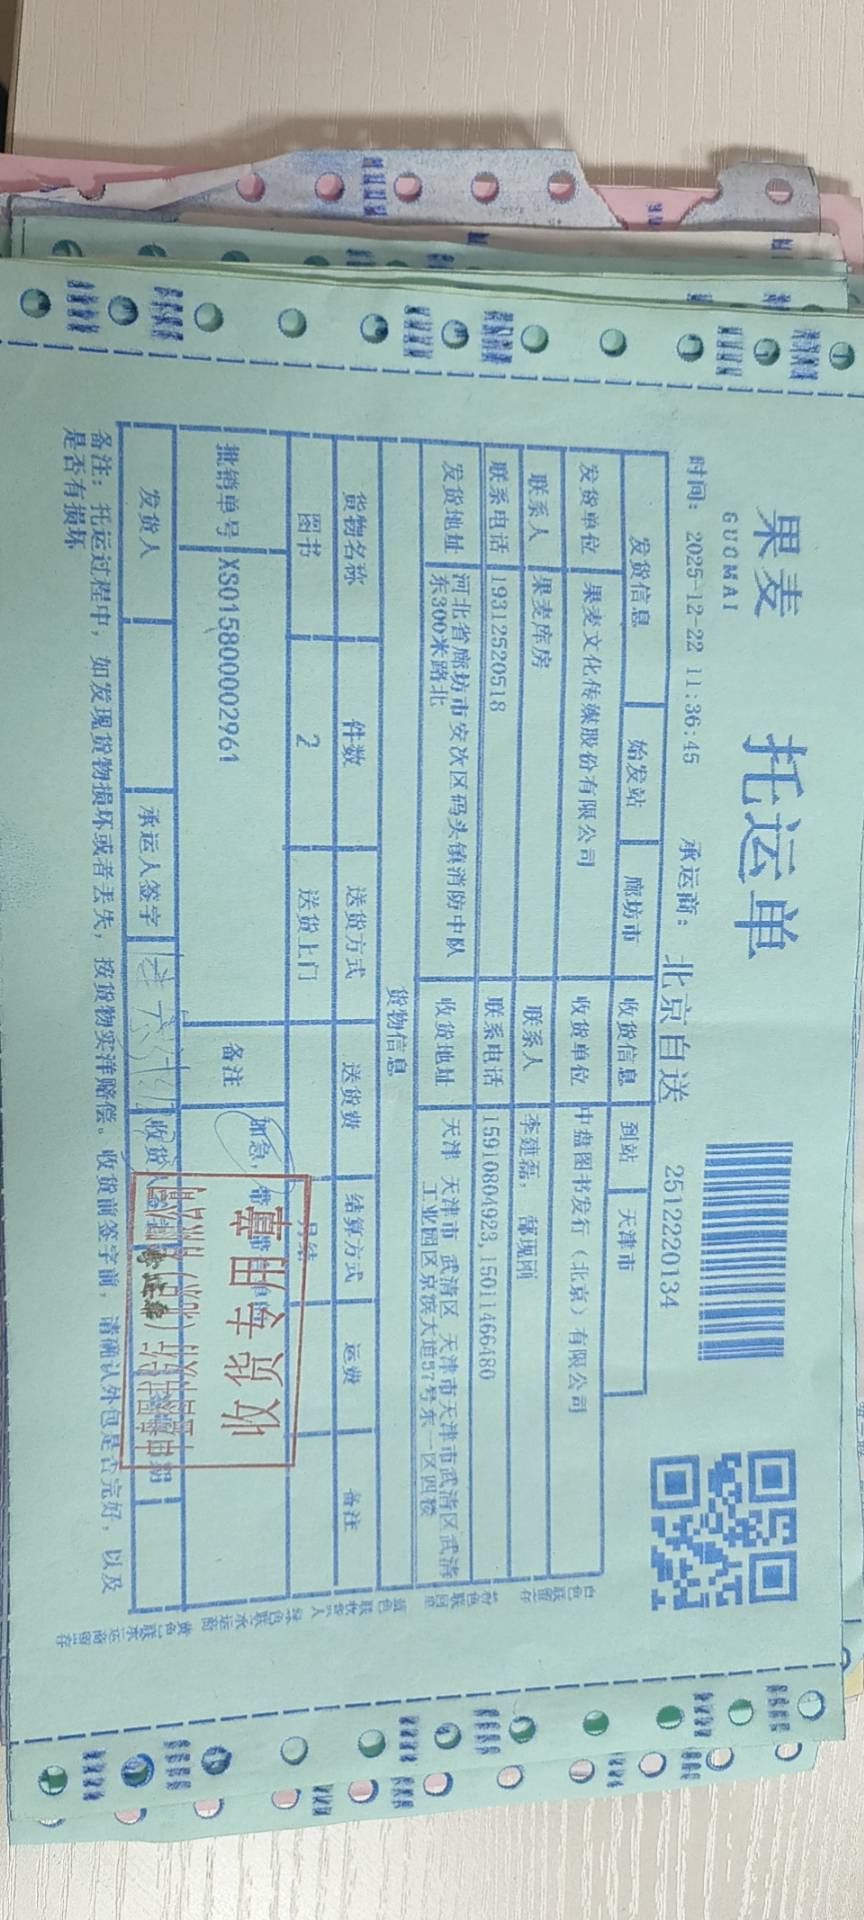 果麦
GUOMAI
托运单
时间： 2025-12-22 11:36:45
承运商： 北京自送
2512220134
发货信息 始发站 廊坊市 收货信息 到站 天津市
发货单位 果麦文化传媒股份有限公司 收货单位 中盘图书发行（北京）有限公司
联系人 果麦库房 联系人 李建磊，
联系电话 19312520518 联系电话 15910804923,15011466480
发货地址 河北省廊坊市安次区码头镇消防中队
东300米路北
收货地址 天津 天津市 武清区 天津市天津市武清区武清
工业园区京滨大道57号东一区四楼
货物信息
货物名称 件数 送货方式 送货费 结算方式 运费 备注
图书 2 送货上门 月结
批销单号 XS015800002961 备注 加急，带
发货人 承运人签字 收货人
收货专用章
备注：托运过程中，如发现货物损坏或者丢失，按货物实洋赔偿。收货前签字前，请确认外包是否完好，以及
是否有损坏
白色联留存
粉色联回单
蓝色联收货人
绿色联承运商
黄色联承运商留存